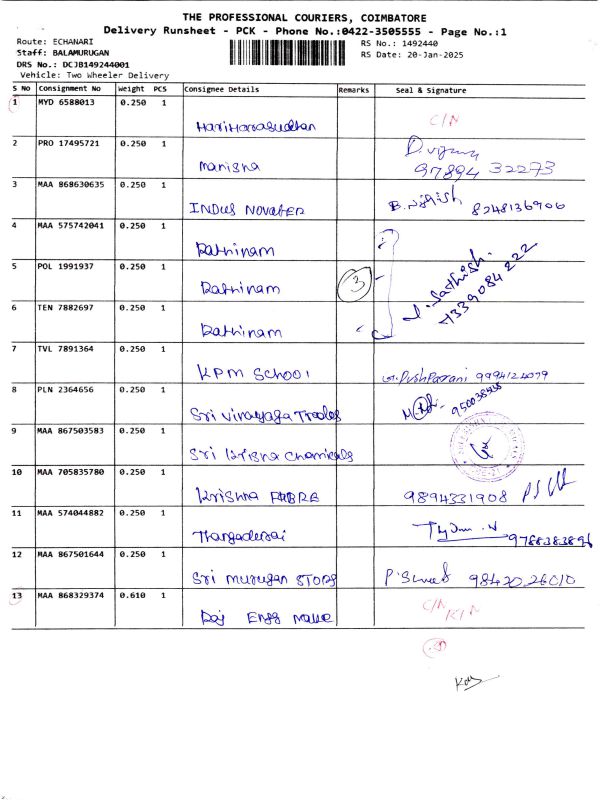 THE PROFESSIONAL COURIERS, COIMBATORE
Delivery Runsheet - PCK - Phone No.:0422-3505555 - Page No.:1
Route: ECHANARI
RS No.: 1492440
Staff: BALAMURUGAN
RS Date: 20-Jan-2025
DRS No.: DCJB149244001
Vehicle: Two Wheeler Delivery
S No Consignment No Weight PCS Consignee Details Remarks Seal & Signature
1 MYD 6588013 0.250 1
Hariharasudhan C/N
2 PRO 17495721 0.250 1
Manisha 97894 32273
3 MAA 868630635 0.250 1
INDUS NOVATER 8248136906
4 MAA 575742041 0.250 1
Rathinam
5 POL 1991937 0.250 1
Rathinam 3
6 TEN 7882697 0.250 1
Rathinam
Sathish.
7339084222
7 TVL 7891364 0.250 1
KPM School 9994124079
8 PLN 2364656 0.250 1
Sri Vinayaga Trades
9 MAA 867503583 0.250 1
Sri Krisna Chemicals
10 MAA 705835780 0.250 1
Krishna 9894331908
11 MAA 574044882 0.250 1
Thangadesai 9788383896
12 MAA 867501644 0.250 1
Sri Murugan STORS 98420 26010
13 MAA 868329374 0.610 1
Raj Engg C/N